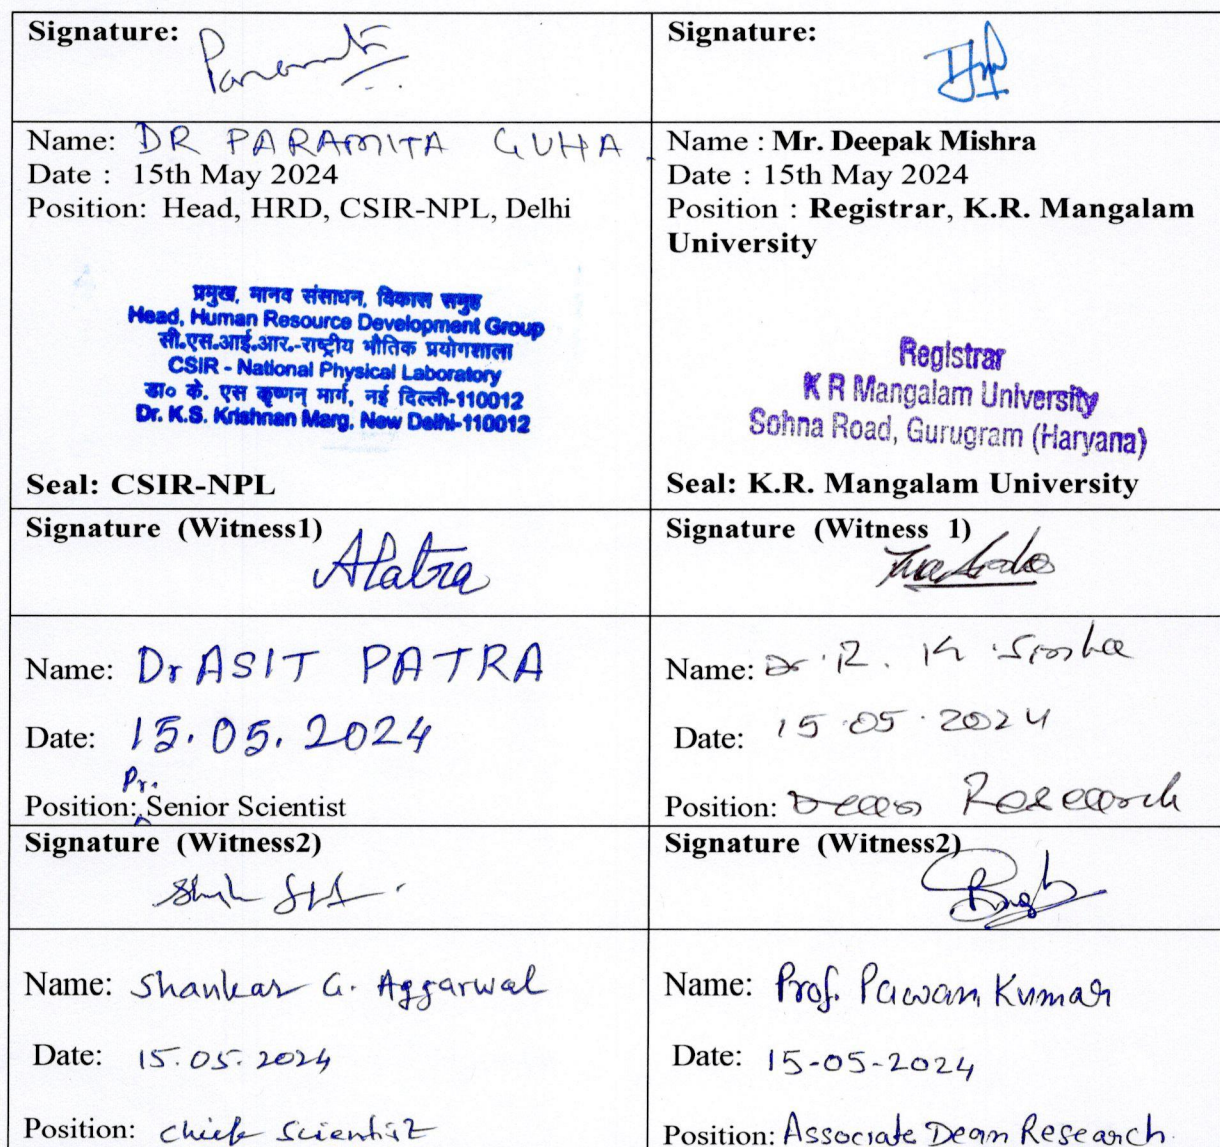 Signature:
Name: DR PARAMITA GUHA
Date : 15th May 2024
Position: Head, HRD, CSIR-NPL, Delhi
प्रमुख, मानव संसाधन, विकास समुह
Head, Human Resource Development Group
सी.एस.आई.आर.-राष्ट्रीय भौतिक प्रयोगशाला
CSIR - National Physical Laboratory
डा० के. एस कृष्णन् मार्ग, नई दिल्ली-110012
Dr. K.S. Krishnan Marg, New Delhi-110012
Seal: CSIR-NPL
Signature:
Name : Mr. Deepak Mishra
Date : 15th May 2024
Position : Registrar, K.R. Mangalam
University
Registrar
K R Mangalam University
Sohna Road, Gurugram (Haryana)
Seal: K.R. Mangalam University
Signature (Witness1)
APatra
Name: Dr ASIT PATRA
Date: 15.05.2024
Position: Pr. Senior Scientist
Signature (Witness 1)
Name: Dr. R. K Sinha
Date: 15.05.2024
Position: Dean Research
Signature (Witness2)
Name: Shankar G. Aggarwal
Date: 15.05.2024
Position: Chief Scientist
Signature (Witness2)
Name: Prof. Pawan Kumar
Date: 15-05-2024
Position: Associate Dean Research